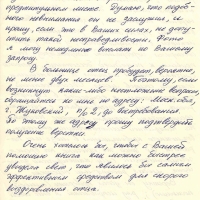 предпитийном листе. Думаю, что подоб-
ного невнимания он не заслужил, и
прошу, если это в Ваших силах, не допу-
стить такой несправедливости. Фото
я могу немедленно выслать по Вашему
запросу.
В больнице отец пробудет, вероятно,
не менее двух месяцев. Поэтому, если
возникнут какие-либо неотложные вопросы,
обращайтесь ко мне по адресу: Моск. обл.,
г. Жуковский,
По этому же адресу прошу подтвердить
получение верстки.
Очень хотелось бы, чтобы с Вашей
помощью книга как можно быстрее
увидела свет, что явилось бы самым
эффективным средством для скорого
выздоровления отца.